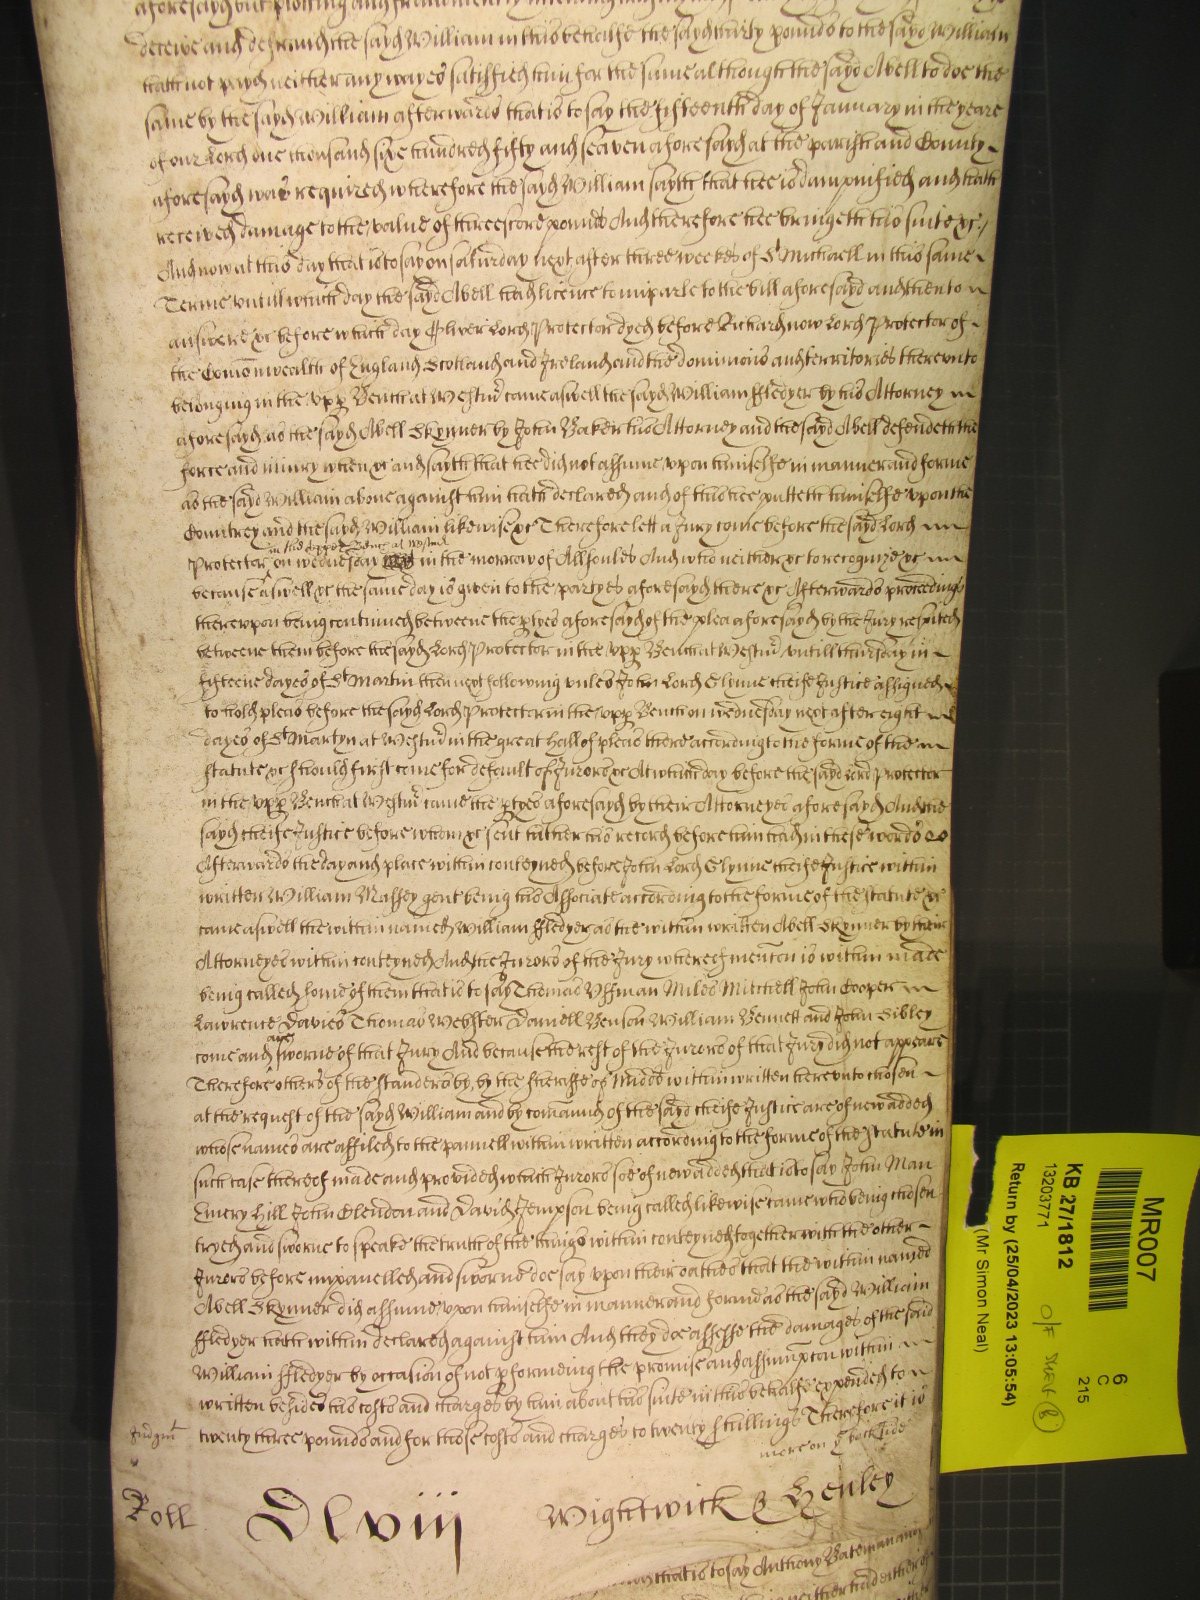 aforesayd but plotting and fraudulently intending
deceive and defraud the sayd William in this behalfe the sayd thirty pounds to the sayd William
hath not payd neither any wayes satisfied him for the same although the sayd Abell to doe the
same by the sayd William afterwards that is to say the fifteenth day of January in the yeare
of our Lord one thousand six hundred fifty and seaven aforesayd at the parish and County
aforesayd was required wherefore the sayd William sayth that hee is dampnified and hath
received damage to the value of threescore pounds And therefore hee bringeth his suite &c:/
And now at this day that is to say on Saturday next after three weekes of St Michaell in this same
Terme untill which day the sayd Abell had licence to imparle to the bill aforesayd and then to
answere &c before which day Oliver Lord Protector dyed before Richard now Lord Protector of
the Comonwealth of England Scotland and Ireland and the dominions and territories thereunto
belonging in the upp Bench at Westmr came aswell the sayd William ffledyer by his Attorney
aforesayd as the sayd Abell Skynner by John Baker his Attorney and the sayd Abell defendeth the
force and iniury when &c and sayth that hee did not assume upon himselfe in manner and forme
as the sayd William above against him hath declared and of this hee putteth himselfe upon the
Countrey and the sayd William likewise &c Therefore lett a Jury come before the sayd Lord
in the upper Bench at Westmr
Protector on wednesday in the morrow of All soules And who neither &c to recognize &c
because aswell &c the same day is given to the partyes aforesayd there &c Afterwards proceedings
thereupon being continued betweene the ptyes aforesayd of the plea aforesayd by the Jury respited
betweene them before the sayd Lord Protector in the upp Bench at Westmr untill thursday in
fifteene dayes of St Martin then next following unles John Lord Glynne cheife Justice assigned
to hold pleas before the sayd Lord Protector in the upp Bench on wednesday next after eight
dayes of St Martyn at Westmr in the great hall of pleas there according to the forme of the
statute &c should first come for default of Jurors &c At which day before the sayd Lord Protector
in the upp Bench at Westmr came the ptyes aforesayd by their Attorneyes aforesayd And the
sayd cheife Justice before whom &c sent hither his record before him had in these words
Afterwards the day and place within conteyned before John Lord Glynne cheife Justice within
written William Massey gent being his Associate according to the forme of the statute &c
came aswell the within named William ffledyer as the within written Abell Skynner by their
Attorneyes within conteyned And the Jurors of the Jury whereof mencon is within made
being called some of them that is to say Thomas Uffman Miles Mitchell John Cooper
Lawrence Davies Thomas Webster Daniell Benson William Bennett and John Sibley
come and are sworne of that Jury And because the rest of the Jurors of that Jury did not appeare
Therefore others of the standers by, by the sheriffe of Midds within written hereunto chosen
at the request of the sayd William and by comaund of the sayd cheife Justice are of new added
whose names are affiled to the pannell within written according to the forme of the statute in
such case thereof made and provided which Jurors soe of new added that is to say John Man
Emery Hill John Clendon and David Jempson being called likewise came who being chosen
tryed and sworne to speake the truth of the things within conteyned together with the other
Jurors before impanelled and sworne doe say upon their oathes that the within named
Abell Skynner did assume upon himselfe in manner and forme as the sayd William
ffledyer hath within declared against him And they doe assesse the damages of the said
William ffledyer by occasion of not pforming the promise and assumpcon within
written besides his costs and charges by him about his suite in this behalfe expended to
Judgmt twenty three pounds and for those costs and charges to twenty shillings Therefore it is
more on ye back side
Roll Dlviij Wightwick & Henley
that is to say Anthony Bateman
neither had either of
MR007
6
C
215
KB 27/1812
13203771
O/F Sheet 6
Return by (25/04/2023 13:05:54)
(Mr Simon Neal)